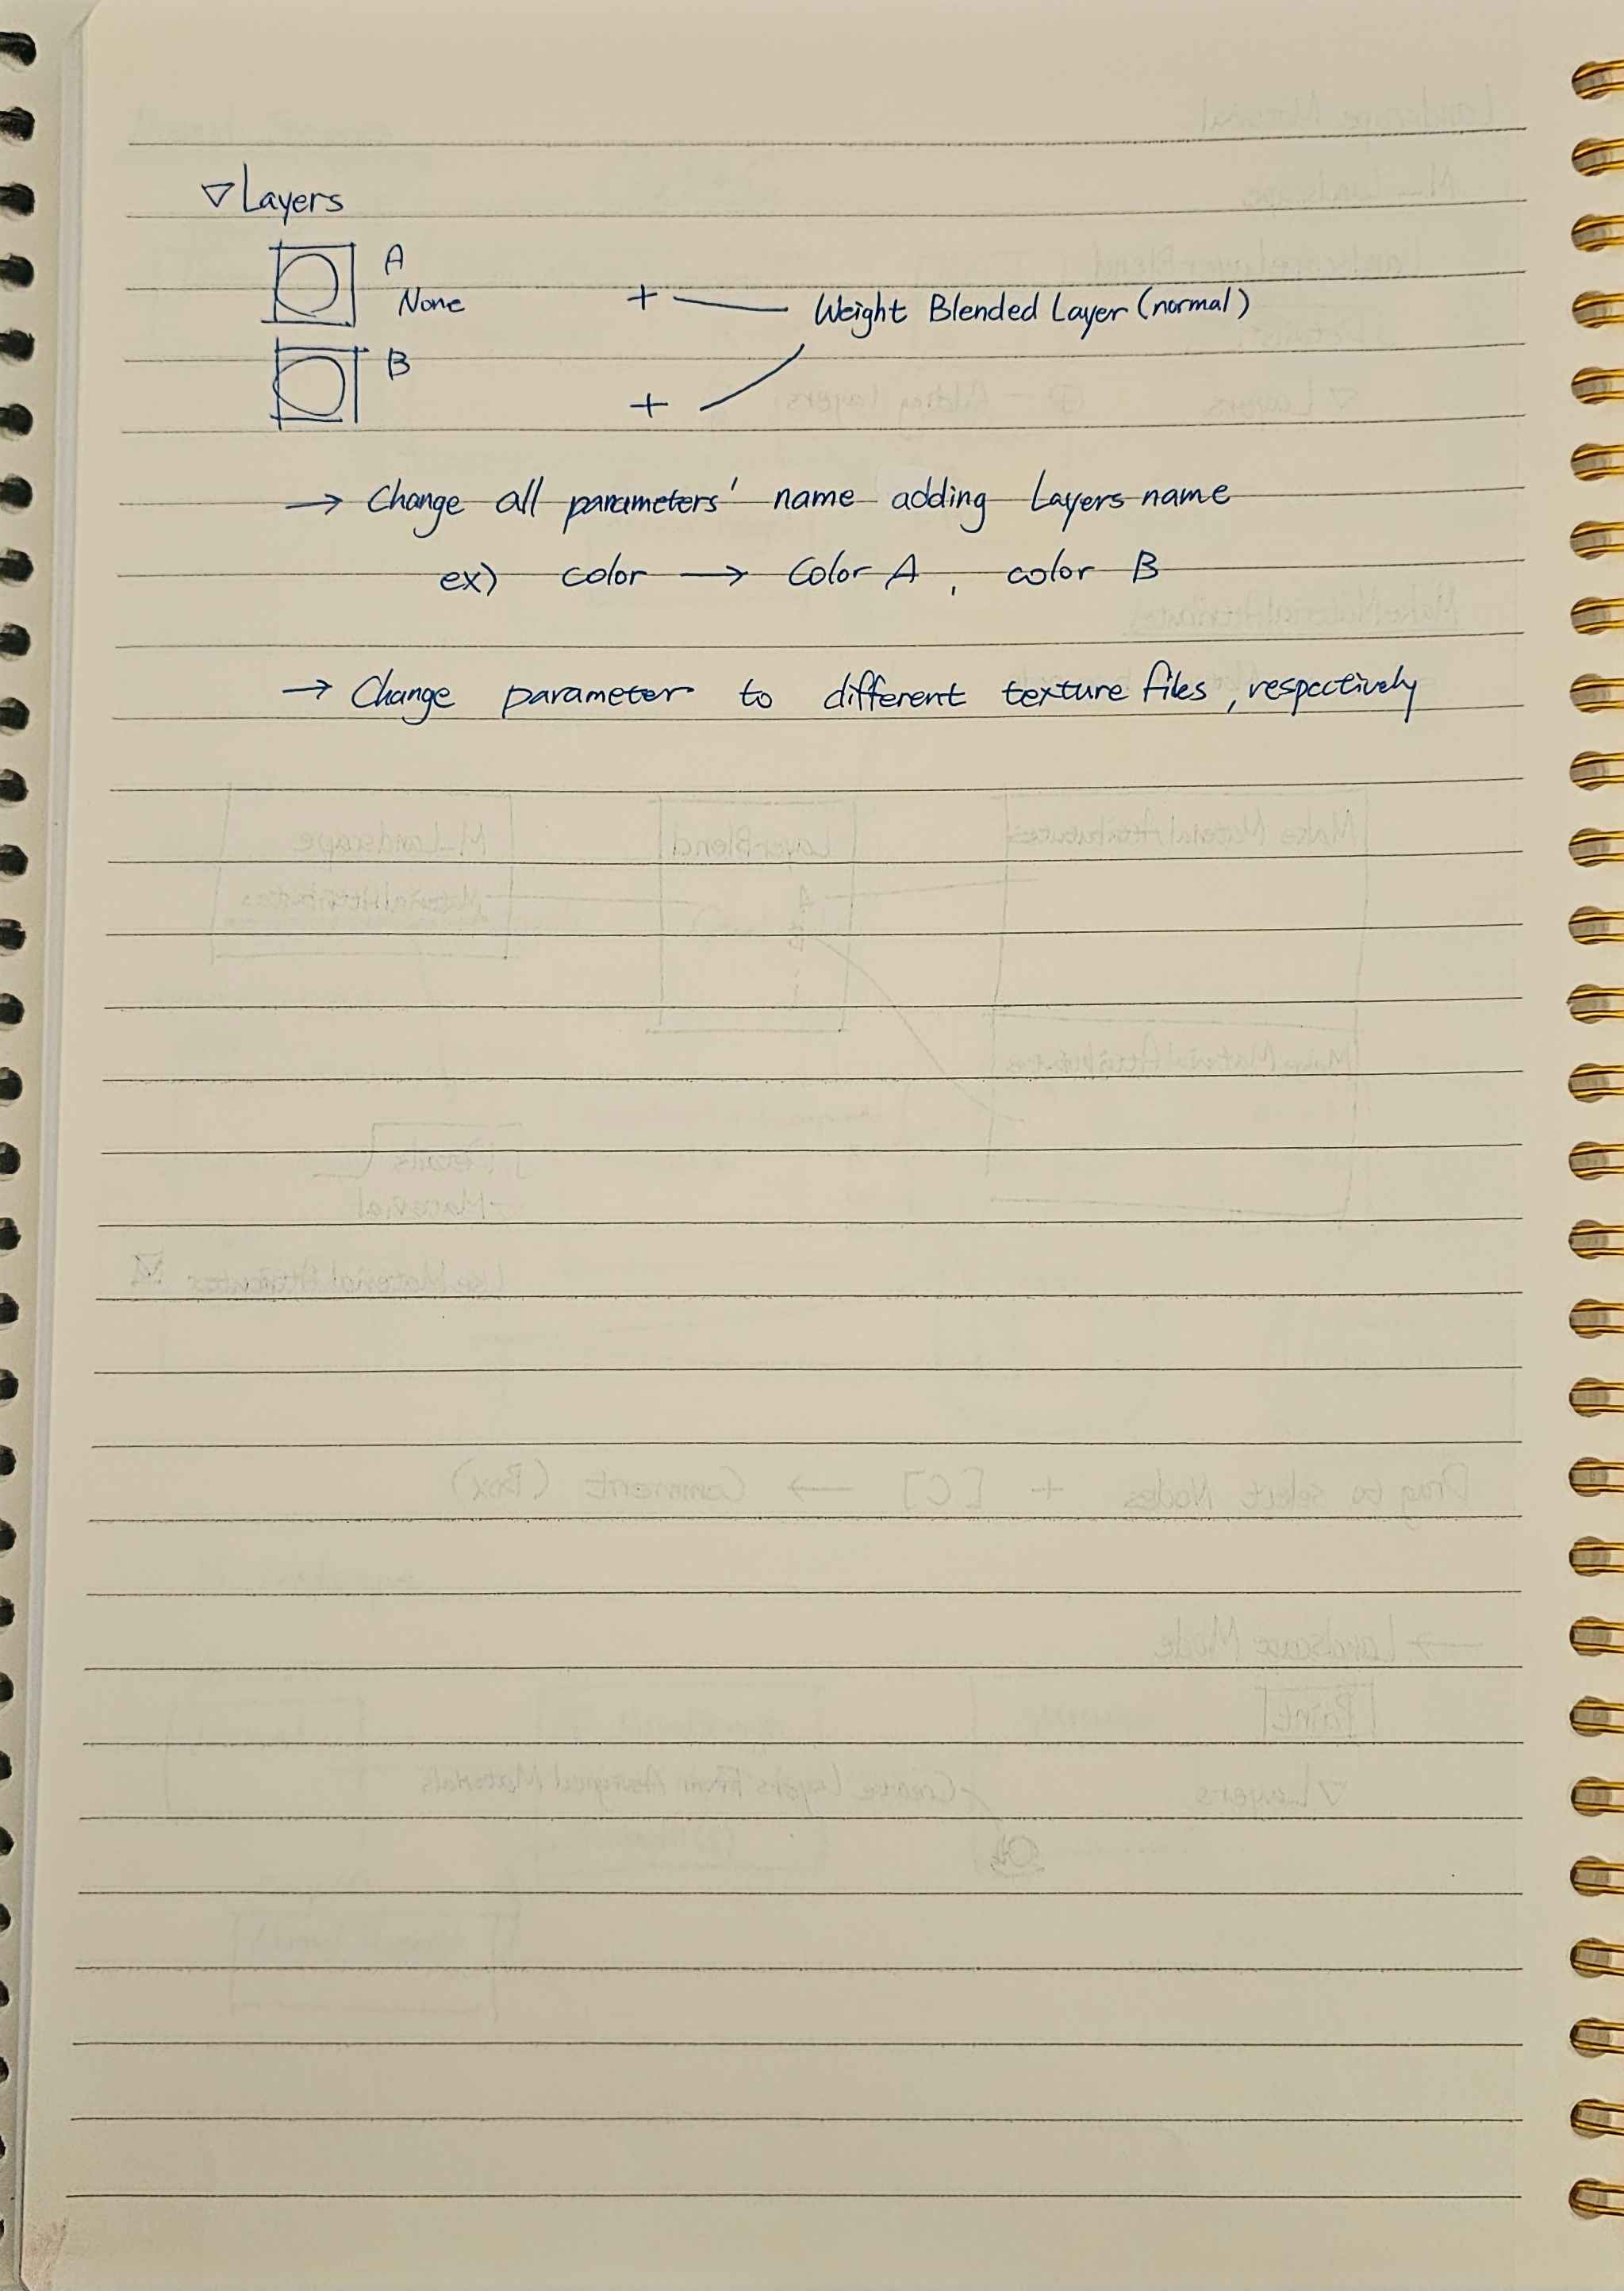 ▽ Layers
A
None + Weight Blended Layer (normal)
B
+
→ Change all parameters' name adding Layers name
ex) color → Color A, color B
→ Change parameter to different texture files, respectively